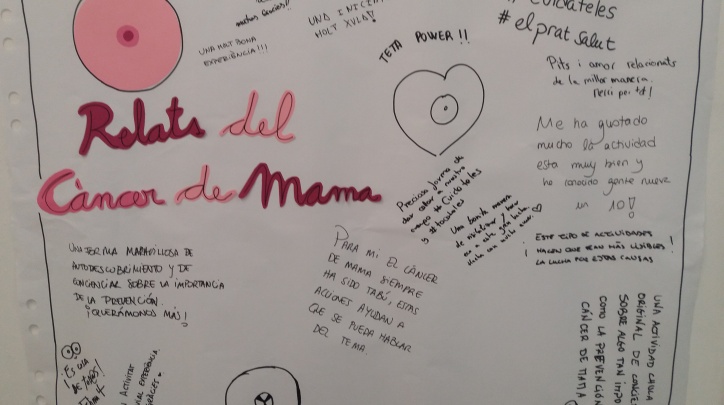 muchas Gracias!!
UNA MOLT BONA
EXPERIÈNCIA!!!
UNA INICIA
MOLT XULA!
TETA POWER!!
#Cuidateles
#elprat salut
Pits i amor relacionats
de la millor manera.
Merci per tot!
Me ha gustado
mucho la actividad
esta muy bien y
he conocido gente nueva
un 10!
Relats del
Càncer de Mama
Preciosa forma de
dar color a nuestro
cuerpo #Cuidateles
y #tocateles
Una bonita manera
de
¡ESTE TIPO DE ACTIVIDADES
HACEN QUE SEAN MÁS VISIBLES
LA LUCHA POR ESTAS CAUSAS!
UNA FORMA MARAVILLOSA DE
AUTODESCUBRIMIENTO Y DE
CONCIENCIAR SOBRE LA IMPORTANCIA
DE LA PREVENCIÓN.
¡QUERÁMONOS MÁS!
PARA MI EL CÁNCER
DE MAMA SIEMPRE
HA SIDO TABÚ, ESTAS
ACCIONES AYUDAN A
QUE SE PUEDA HABLAR
DEL TEMA.
UNA ACTIVIDAD CHULA
ORIGINAL DE CONCIE
SOBRE ALGO TAN IMPO
COMO LA PREVENCIÓN
CÁNCER DE MAMA
¡ES UNA
DE
ACTIVITAT
EXPERIENCIA